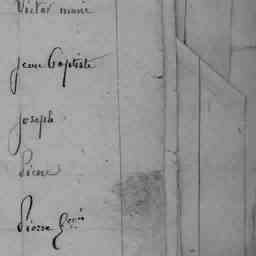 Victor marie
Jean Baptiste
Joseph
Pierre
Pierre Louis